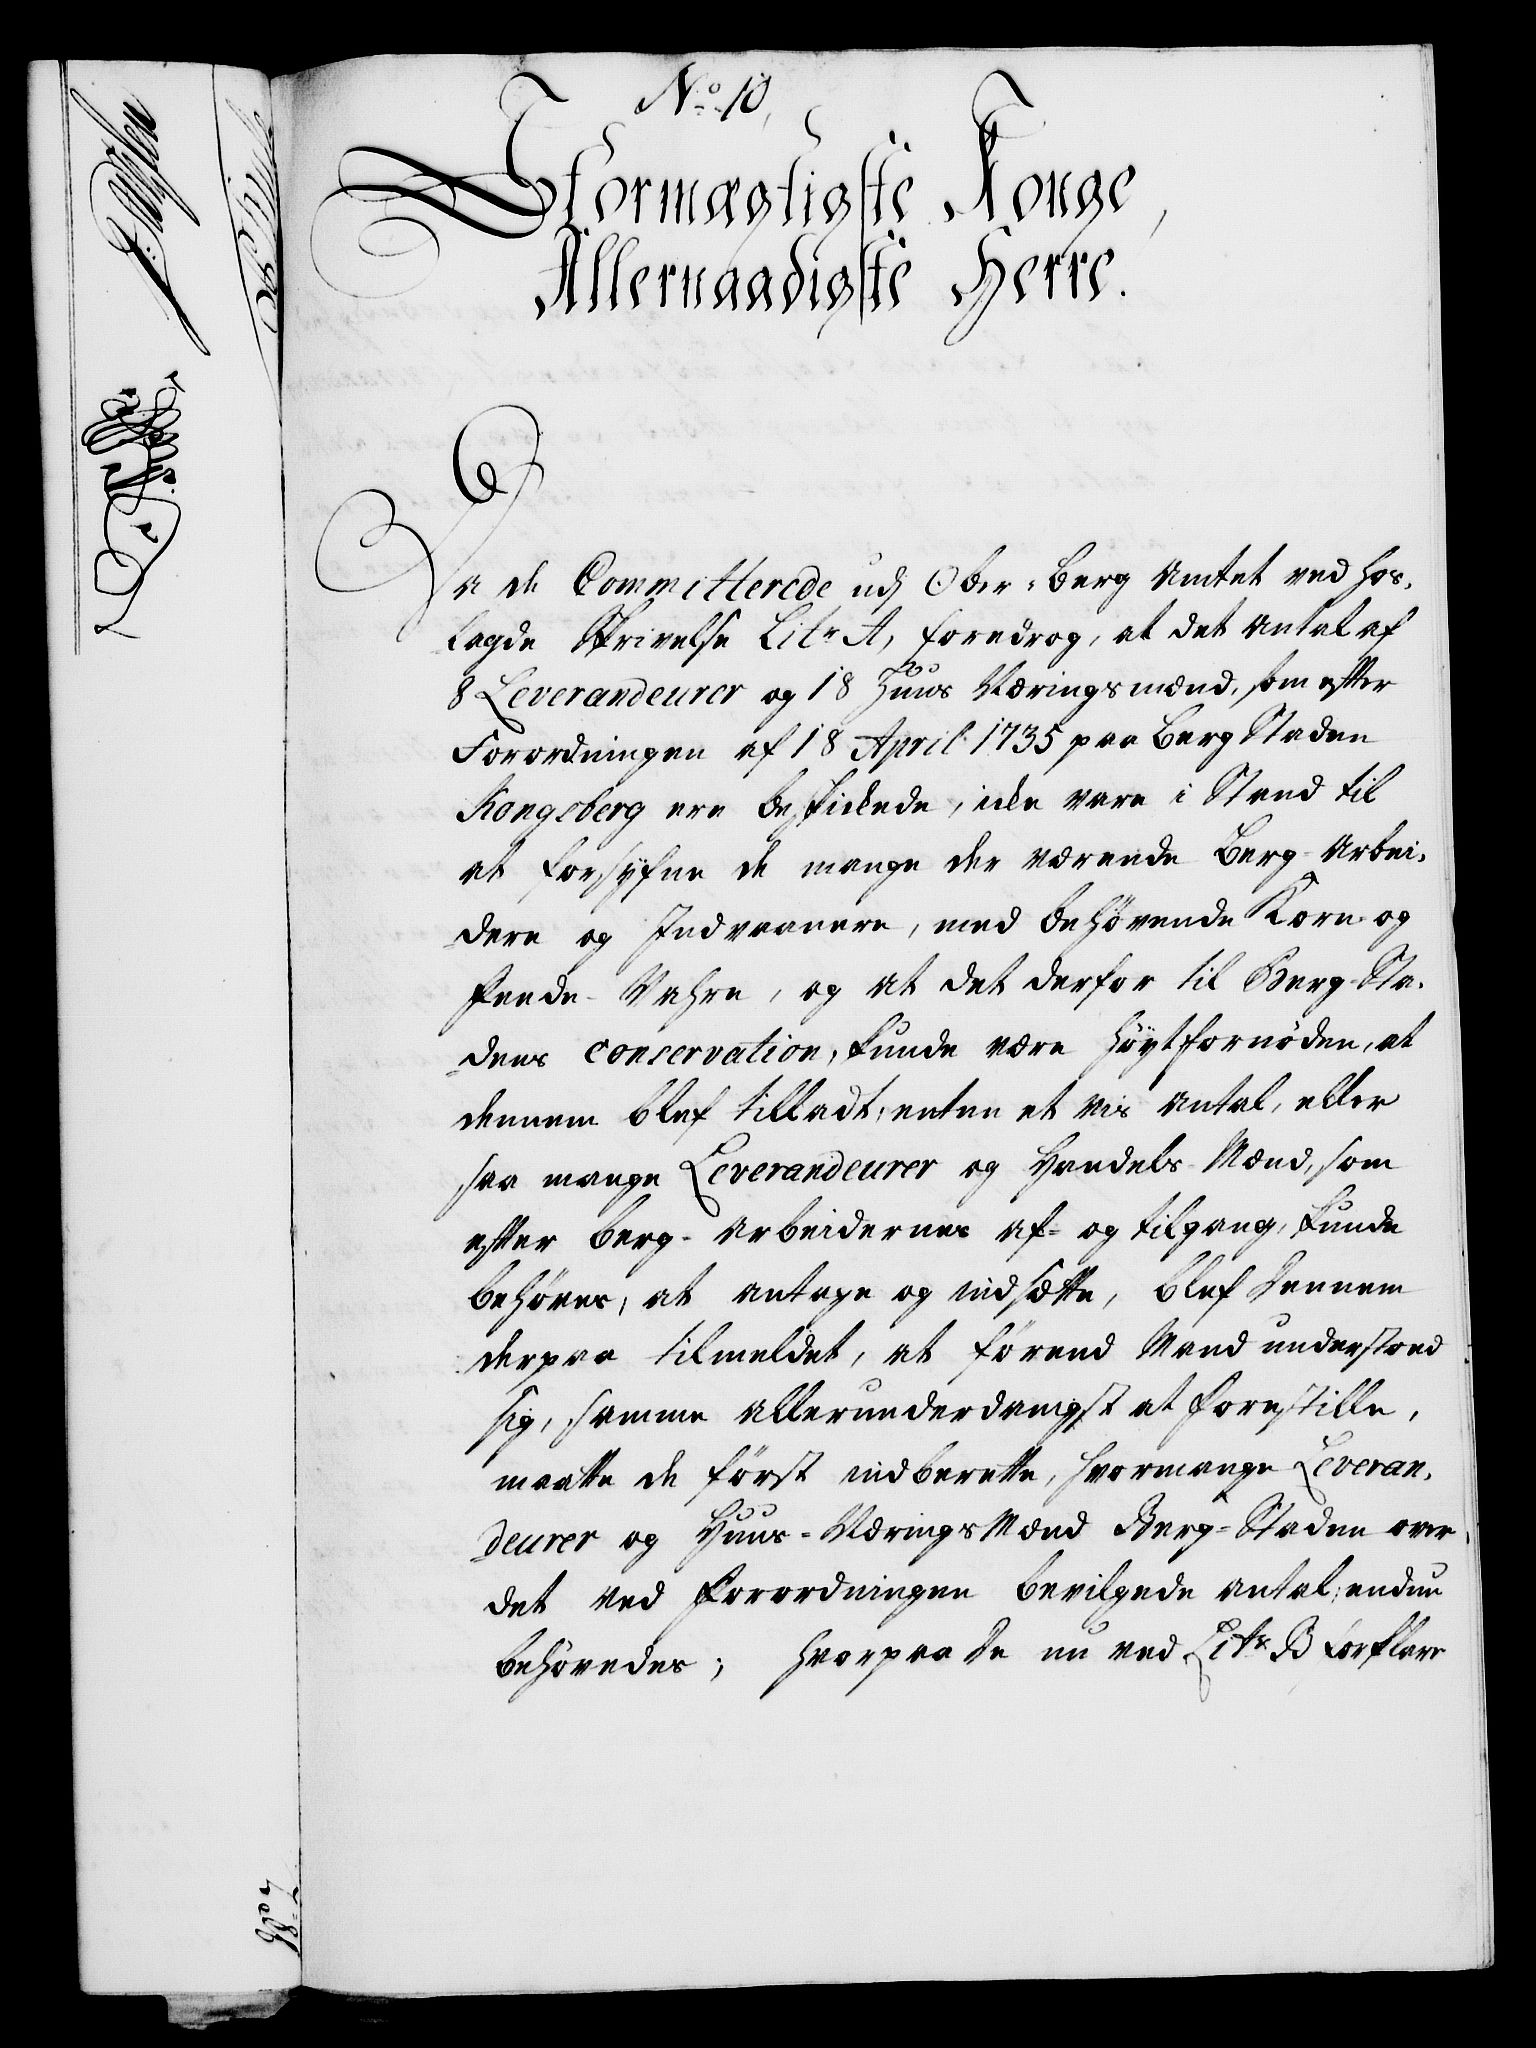 No. 10,
Stormægtigste Konge,
Allernaadigste Herre.
Da de Committerede udj Ober-Berg Amtet ved hos-
lagde Skrivelse Litr A, foredrog, at det Antal af
8 Leverandeurer og 18 Huus Næringsmænd, som efter
Forordningen af 18 April 1735 paa Berg Staden
Kongsberg ere beskikkede, icke vare i Stand til
at forsyfne de mange der værende Berg-Arbei-
dere og Indvaanere, med behøvende Korn og
Feede-Vahre, og at det derfor til Berg-Sta-
dens conservation, kunde være høytfornøden, at
dennem blef tilladt, enten et vis Antal, eller
saa mange Leverandeurer og Handels-Mænd, som
efter Berg-Arbeidernes af- og tilgang, kunde
behøves, at antage og indsætte, blef dennem
derpaa tilmeldet, at førend Mand understoed
sig, samme allerunderdanigst at forestille,
maatte de først indberette, hvormange Leveran-
deurer og Huus-Nærings Mænd Berg-Staden over
det ved Forordningen bevilgede Antal, endnu
behøvedes; hvorpaa de nu ved Litr. B forklare